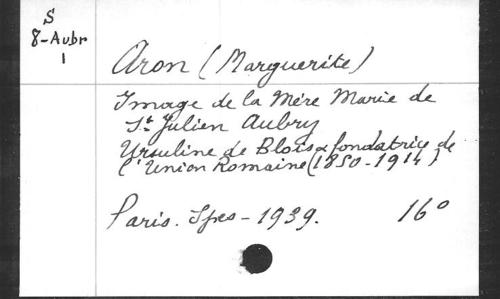 S
8-Aubr
1
Aron (Marguerite)
Image de la Mère Marie de
St Julien Aubry
Ursuline de Blois & fondatrice de
l'Union Romaine (1850-1914)
Paris. Spes - 1939. 16°